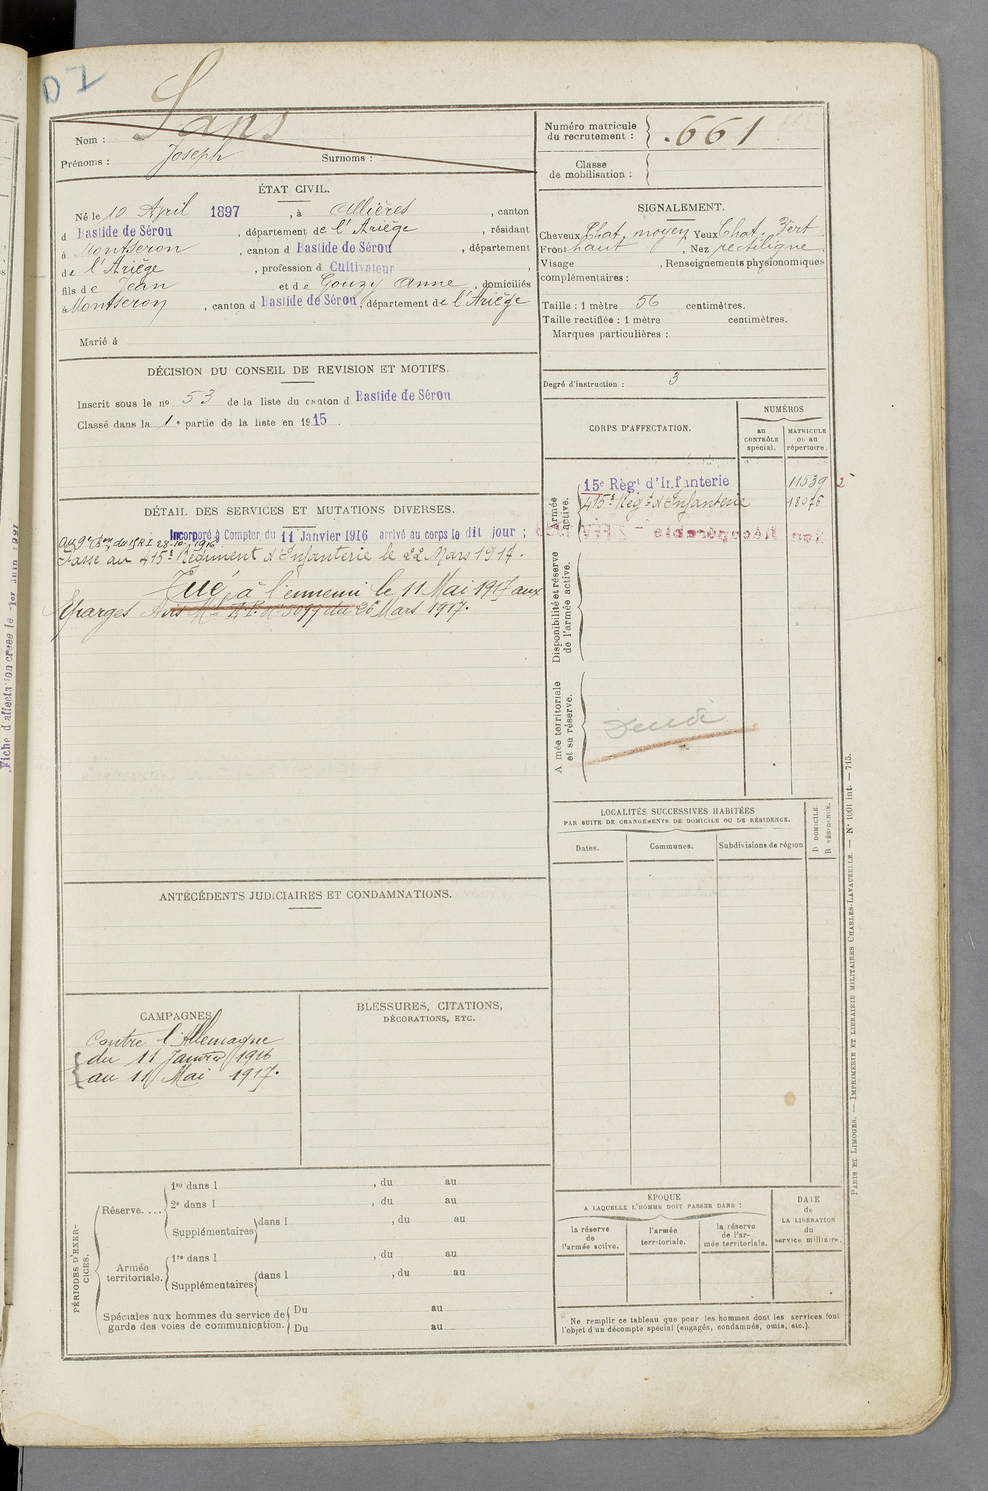 D I
Nom : Sans
Prénoms : Joseph Surnoms :
Numéro matricule du recrutement : 661
Classe de mobilisation :
ÉTAT CIVIL.
Né le 10 April 1897, à Allières, canton
d Bastide de Sérou, département de l'Ariège, résidant
à Montseron, canton d Bastide de Sérou, département
de l'Ariège, profession d Cultivateur,
fils de Jean et de Gouzy Anne, domiciliés
à Montseron, canton d Bastide de Sérou, département de l'Ariège
Marié à
SIGNALEMENT.
Cheveux Chat. moyen, Yeux Chat. Vert
Front haut, Nez rectiligne
Visage , Renseignements physionomiques
complémentaires :
Taille : 1 mètre 56 centimètres.
Taille rectifiée : 1 mètre centimètres.
Marques particulières :
Degré d'instruction : 3
DÉCISION DU CONSEIL DE REVISION ET MOTIFS.
Inscrit sous le no 53 de la liste du canton d Bastide de Sérou
Classé dans la 1e partie de la liste en 1915.
CORPS D'AFFECTATION.
NUMÉROS
au CONTRÔLE spécial.
MATRICULE ou au répertoire.
Armée active.
15e Régt d'Infanterie 11539 2
415e Régt d'Infanterie 18076
Non Récupérable
Disponibilité et réserve de l'armée active.
A mée territoriale et sa réserve.
DÉTAIL DES SERVICES ET MUTATIONS DIVERSES.
Incorporé à Compter du 11 Janvier 1916 arrivé au corps le dit jour ;
au 9e Bon du 15 R I 28-10-1916.
Passé au 415e Régiment d'Infanterie le 22 Mars 1917.
Tué à l'ennemi le 11 Mai 1917 aux
Eparges Avis Mel du 26 Mars 1917.
LOCALITÉS SUCCESSIVES HABITÉES
PAR SUITE DE CHANGEMENTS DE DOMICILE OU DE RÉSIDENCE.
Dates.
Communes.
Subdivisions de région
D DOMICILE.
R RÉSIDENCE.
ANTÉCÉDENTS JUDICIAIRES ET CONDAMNATIONS.
CAMPAGNES
Contre l'Allemagne
du 11 Janvier 1916
au 11 Mai 1917.
BLESSURES, CITATIONS,
DÉCORATIONS, ETC.
PÉRIODES D'EXERCICES.
Réserve....
1re dans l , du au
2e dans l , du au
Supplémentaires dans l , du au
Armée territoriale.
1re dans l , du au
Supplémentaires dans l , du au
Spéciales aux hommes du service de garde des voies de communication.
Du au
Du au
EPOQUE
A LAQUELLE L'HOMME DOIT PASSER DANS :
la réserve de l'armée active.
l'armée territoriale.
la réserve de l'armée territoriale.
DATE de LA LIBÉRATION du service militaire.
Ne remplir ce tableau que pour les hommes dont les services font
l'objet d'un décompte spécial (engagés, condamnés, omis, etc.).
PARIS ET LIMOGES. — IMPRIMERIE ET LIBRAIRIE MILITAIRES CHARLES-LAVAUZELLE. — N° 1001 int. — 715.